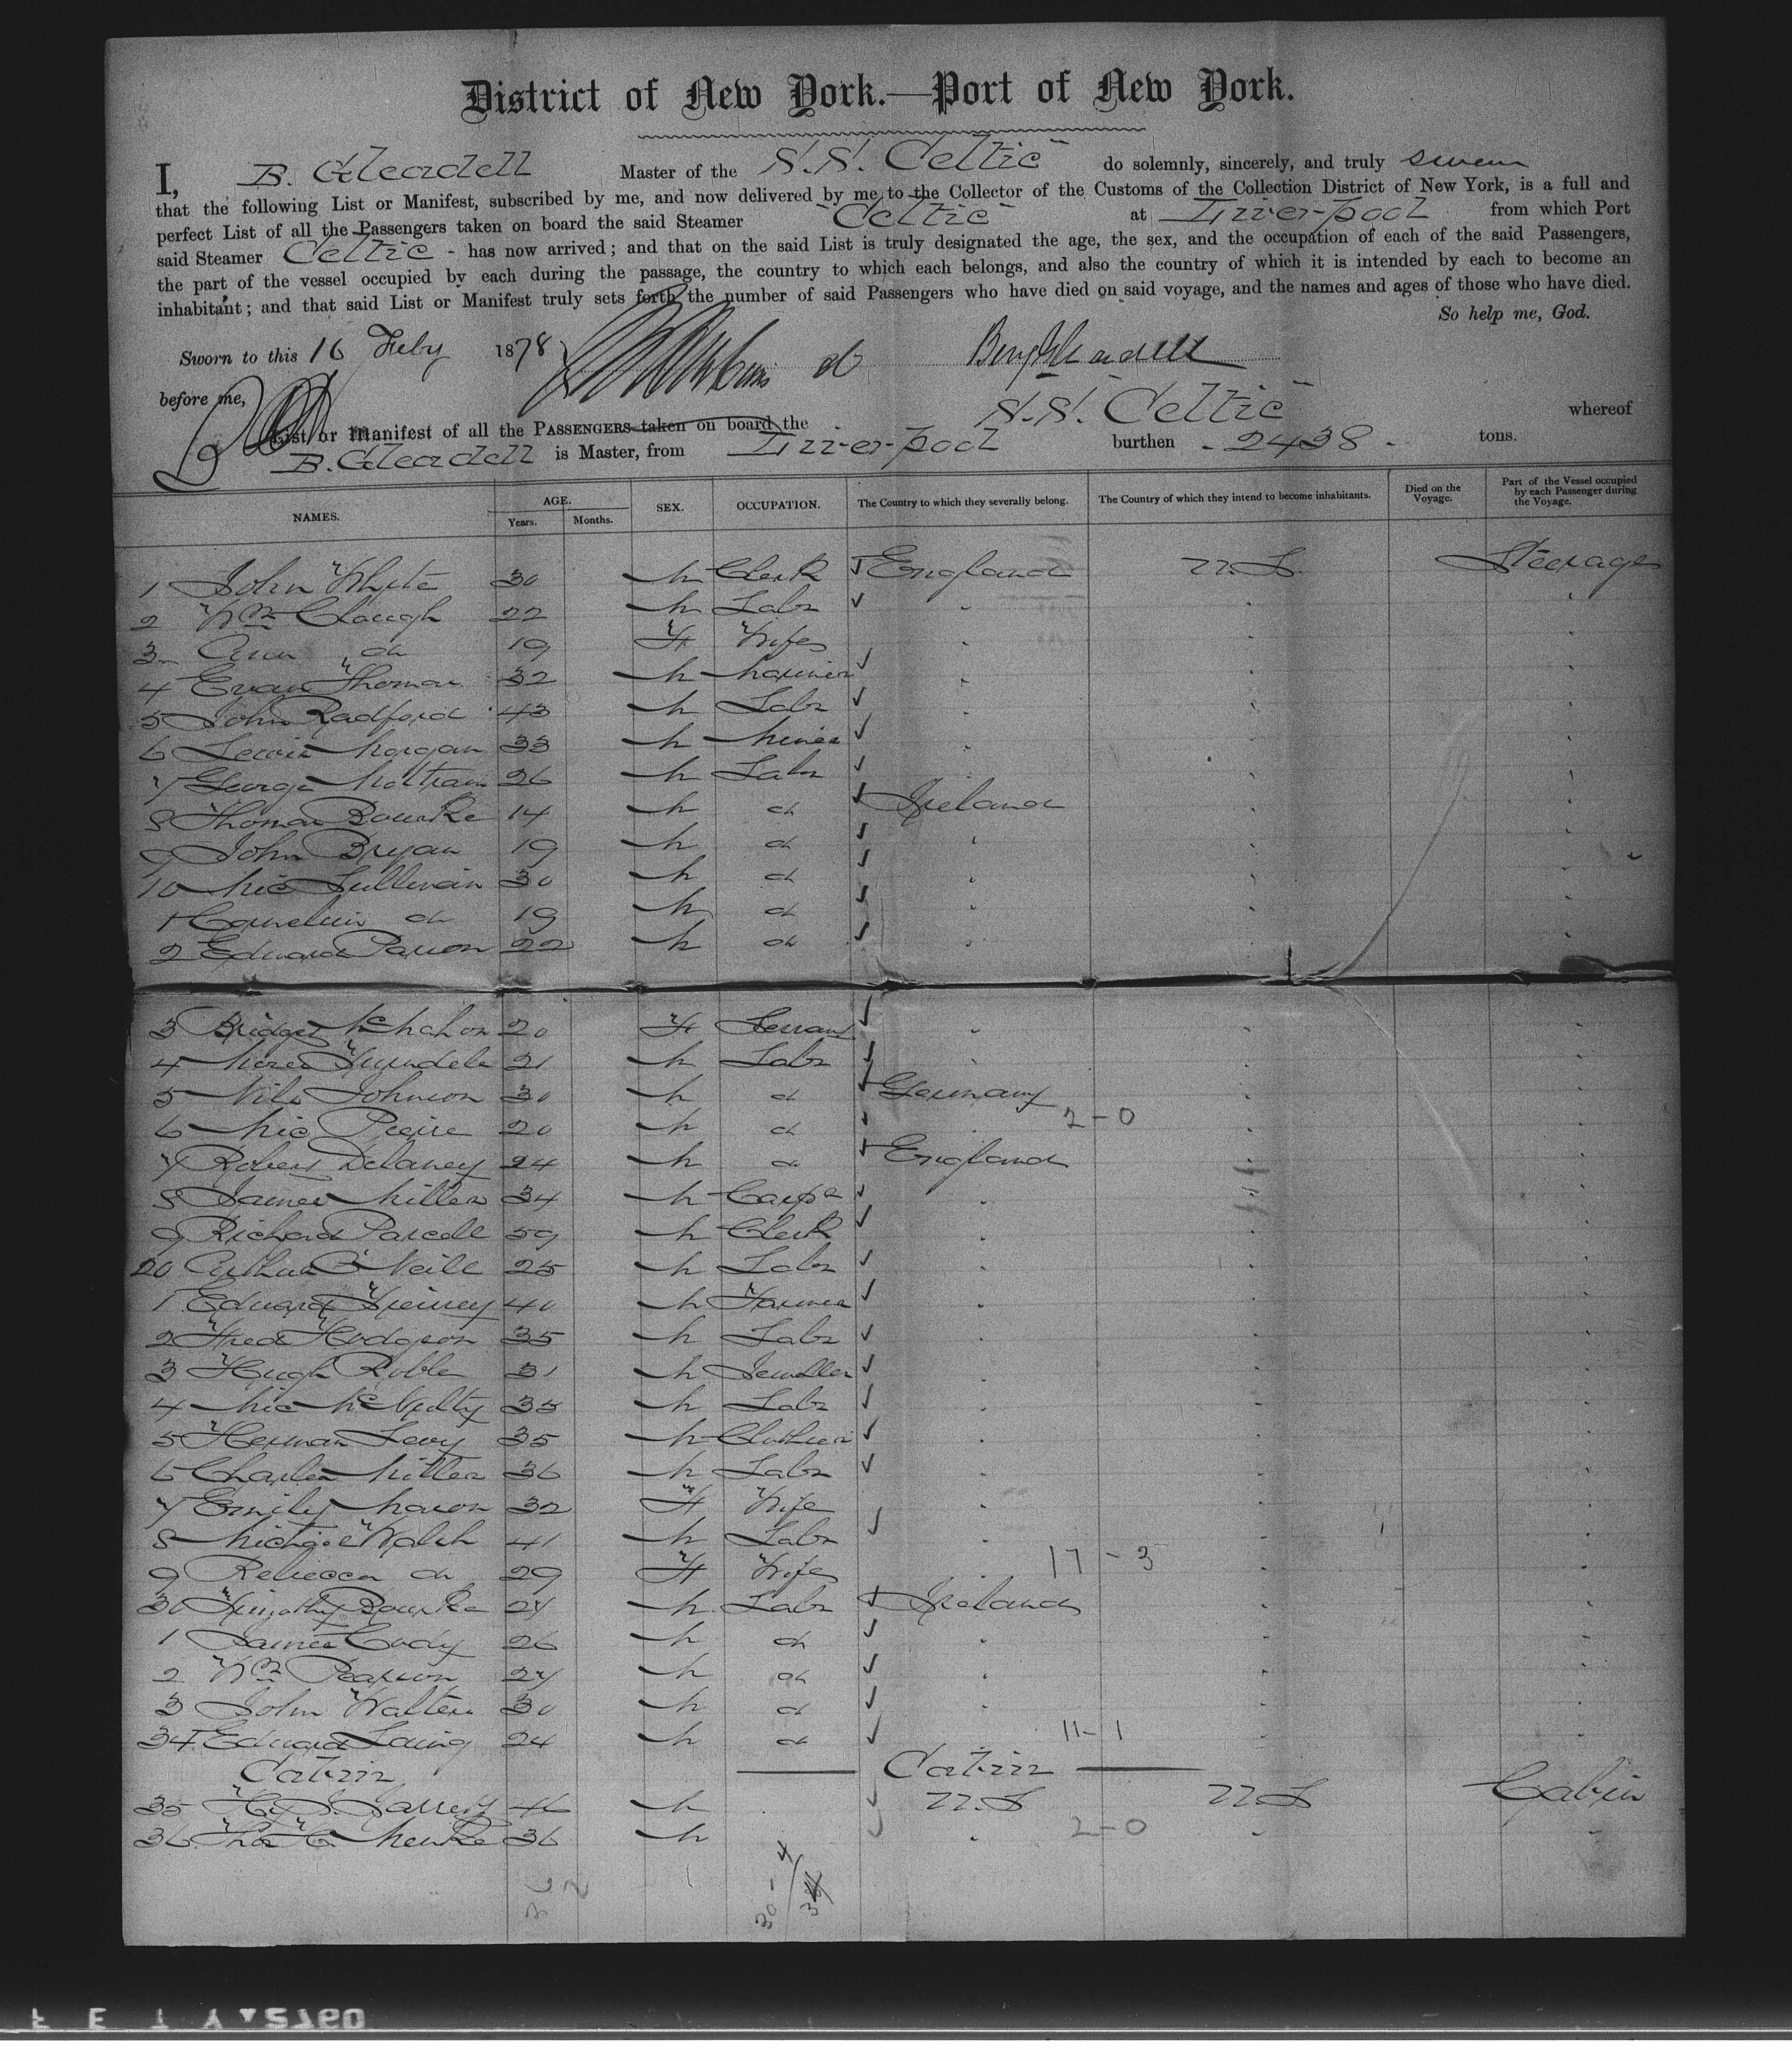 District of New York.—Port of New York.
I, B. Gleadell Master of the S.S. Celtic do solemnly, sincerely, and truly swear
that the following List or Manifest, subscribed by me, and now delivered by me to the Collector of the Customs of the Collection District of New York, is a full and
perfect List of all the Passengers taken on board the said Steamer "Celtic" at Liverpool from which Port
said Steamer Celtic - has now arrived; and that on the said List is truly designated the age, the sex, and the occupation of each of the said Passengers,
the part of the vessel occupied by each during the passage, the country to which each belongs, and also the country of which it is intended by each to become an
inhabitant; and that said List or Manifest truly sets forth the number of said Passengers who have died on said voyage, and the names and ages of those who have died.
So help me, God.
Sworn to this 16 Feby 1878 Benj Gleadell
before me,
List or Manifest of all the PASSENGERS taken on board the S.S. Celtic whereof
B. Gleadell is Master, from Liverpool burthen - 2438 - tons.
NAMES. AGE. Years. Months. SEX. OCCUPATION. The Country to which they severally belong. The Country of which they intend to become inhabitants. Died on the Voyage. Part of the Vessel occupied by each Passenger during the Voyage.
1 John Whyte 30 M Clerk England U.S. Steerage
2 Wm Clough 22 M Labr
3 Ann do 19 F Wife
4 Evan Thomas 32 M Mariner
5 John Radford 43 M Labr
6 Lewis Morgan 33 M Miner
7 George Mottram 26 M Labr
8 Thomas Bourke 14 M do Ireland
9 John Bryan 19 M do
10 Mic Sullivan 30 M do
1 Cornelius do 19 M do
2 Edward Parson 22 M do
3 Bridget McMahon 20 F Servant
4 21 M Labr
5 Nils Johnson 30 M do Germany
6 Mic Pierre 20 M do 2-0
7 Robert Delaney 24 M do England
8 James Miller 34 M Carpr
9 Richard Parcell 59 M Clerk
20 Arthur O'Neill 25 M Labr
1 Edward 40 M Farmer
2 Fred Hodgson 35 M Labr
3 Hugh Roble 31 M Jeweller
4 Mic McNulty 35 M Labr
5 Herman Levy 35 M Clothier
6 Charles Miller 36 M Labr
7 Emily Mason 32 F Wife
8 Michael Walsh 41 M Labr
9 Rebecca do 29 F Wife 17-3
30 Timothy Bourke 27 M Labr Ireland
1 James Cody 26 M do
2 Wm Pearson 27 M do
3 John Walters 30 M do
34 Edward Laing 24 M do 11-1
Cabin Cabin
35 Hy S. Jarrett 46 M U.S U.S Cabin
36 Thos C. Menke 36 M 2-0
36 2 30-4/34